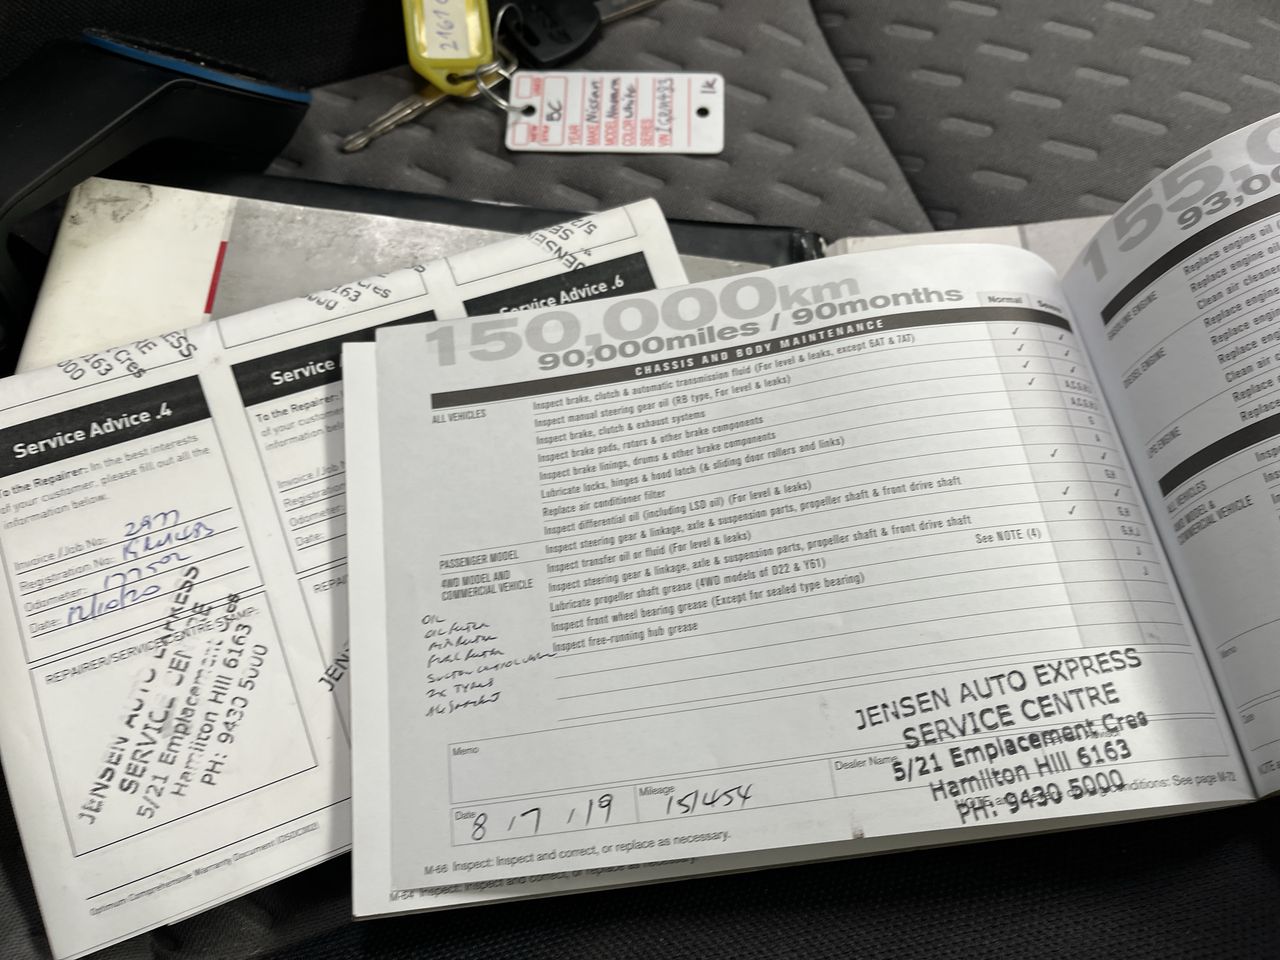 2161
USED
NEW
STK# BC
YEAR
MAKE Nissan
MODEL Navara
COLOR White
SERIES
VIN 1GRM483
1K
Service Advice .4
To the Repairer: In the best interests
of your customer, please fill out all the
information below.
Invoice/Job No:
Registration No:
Odometer: 177502
Date:
REPAIRER/SERVICE CENTRE STAMP:
JENSEN AUTO EXPRESS
SERVICE CENTRE
5/21 Emplacement Cres
Hamilton Hill 6163
PH: 9430 5000
Optimum Comprehensive Warranty Document
Service Advice
To the Repairer:
of your customer
information
Invoice/Job
Registration
Odometer:
Date:
Service Advice .6
150,000km
90,000miles / 90months
CHASSIS AND BODY MAINTENANCE
Normal
ALL VEHICLES
Inspect brake, clutch & automatic transmission fluid (For level & leaks, except 6AT & 7AT)
Inspect manual steering gear oil (RB type, For level & leaks)
Inspect brake, clutch & exhaust systems
Inspect brake pads, rotors & other brake components
Inspect brake linings, drums & other brake components
Lubricate locks, hinges & hood latch (& sliding door rollers and links)
Replace air conditioner filter
Inspect differential oil (including LSD oil) (For level & leaks)
PASSENGER MODEL
Inspect steering gear & linkage, axle & suspension parts, propeller shaft & front drive shaft
4WD MODEL AND
COMMERCIAL VEHICLE
Inspect transfer oil or fluid (For level & leaks)
Inspect steering gear & linkage, axle & suspension parts, propeller shaft & front drive shaft
Lubricate propeller shaft grease (4WD models of D22 & Y61)
See NOTE (4)
Inspect front wheel bearing grease (Except for sealed type bearing)
Inspect free-running hub grease
OIL
OIL FILTER
AIR FILTER
FUEL FILTER
SUCTION CONTROL VALVE
2x TYRES
Memo
Date
8 / 7 / 19
Mileage
151454
Dealer Name
JENSEN AUTO EXPRESS
SERVICE CENTRE
5/21 Emplacement Cres
Hamilton Hill 6163
PH: 9430 5000
conditions: See page M-72
M-66 Inspect: Inspect and correct, or replace as necessary.
M-64 Inspect: Inspect and correct, or replace as necessary.
155,0
93,00
GASOLINE ENGINE
Replace engine oil
Replace engine oil
Clean air cleaner
DIESEL ENGINE
Replace engine
Replace engine
Clean air
LPG ENGINE
Replace
ALL VEHICLES
4WD MODEL &
COMMERCIAL VEHICLE
Memo
Date